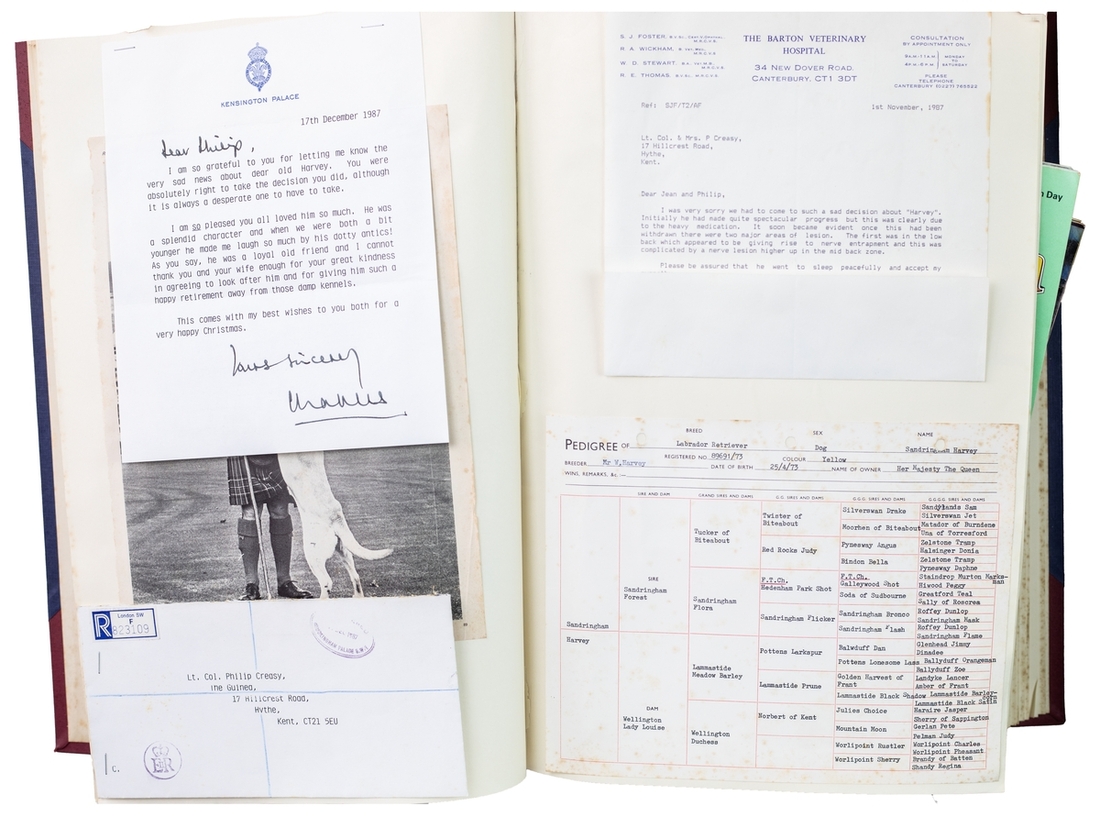 KENSINGTON PALACE
17th December 1987
Dear Philip,
I am so grateful to you for letting me know the
very sad news about dear old Harvey. You were
absolutely right to take the decision you did, although
it is always a desperate one to have to take.
I am so pleased you all loved him so much. He was
a splendid character and when we were both a bit
younger he made me laugh so much by his dotty antics!
As you say, he was a loyal old friend and I cannot
thank you and your wife enough for your great kindness
in agreeing to look after him and for giving him such a
happy retirement away from those damp kennels.
This comes with my best wishes to you both for a
very happy Christmas.
Yours sincerely
Charles
R
London SW
F
823109
Lt. Col. Philip Creasy,
The Guinea,
17 Hillcrest Road,
Hythe,
Kent, CT21 5EU
C.
S. J. FOSTER
R. A. WICKHAM,
W. D. STEWART,
R. E. THOMAS,
THE BARTON VETERINARY
HOSPITAL
34 NEW DOVER ROAD,
CANTERBURY, CT1 3DT
CONSULTATION
BY APPOINTMENT ONLY
9AM-11AM
4PM-6PM
MONDAY
TO
SATURDAY
PLEASE
TELEPHONE
CANTERBURY (0227) 765522
Ref: SJF/T2/AF
1st November, 1987
Lt. Col. & Mrs. P Creasy,
17 Hillcrest Road,
Hythe,
Kent.
Dear Jean and Philip,
I was very sorry we had to come to such a sad decision about "Harvey".
Initially he had made quite spectacular progress but this was clearly due
to the heavy medication. It soon became evident once this had been
withdrawn there were two major areas of lesion. The first was in the low
back which appeared to be giving rise to nerve entrapment and this was
complicated by a nerve lesion higher up in the mid back zone.
Please be assured that he went to sleep peacefully and accept my
n Day
PEDIGREE OF
BREED
Labrador Retriever
SEX
Dog
NAME
Sandringham Harvey
BREEDER Mr W.Harvey
REGISTERED NO. 89691/73
COLOUR Yellow
DATE OF BIRTH 25/4/73
NAME OF OWNER Her Majesty The Queen
WINS, REMARKS, &c.
SIRE AND DAM
GRAND SIRES AND DAMS
G.G. SIRES AND DAMS
G.G.G. SIRES AND DAMS
G.G.G.G. SIRES AND DAMS
Sandringham
Harvey
SIRE
Sandringham
Forest
DAM
Wellington
Lady Louise
Tucker of
Biteabout
Sandringham
Flora
Lammastide
Meadow Barley
Wellington
Duchess
Twister of
Biteabout
Red Rocks Judy
F.T.Ch.
Hedenham Park Shot
Sandringham Flicker
Pottens Larkspur
Lammastide Prune
Norbert of Kent
Silverswan Drake
Moorhen of Biteabout
Pynesway Angus
Bindon Bella
F.T.Ch.
Galleywood Shot
Soda of Sudbourne
Sandringham Bronco
Sandringham Flash
Balwduff Dan
Pottens Lonesome Lass
Golden Harvest of
Frant
Lammastide Black Shadow
Julies Choice
Mountain Moon
Worlipoint Rustler
Worlipoint Sherry
Sandylands Sam
Silverswan Jet
Matador of Burndene
Una of Torresford
Zelstone Tramp
Halsinger Donia
Zelstone Tramp
Pynesway Daphne
Staindrop Murton Marks-
man
Hiwood Peggy
Greatford Teal
Sally of Roscrea
Roffey Dunlop
Sandringham Mask
Roffey Dunlop
Sandringham Flame
Glenhead Jimmy
Dinadee
Ballyduff Orangeman
Ballyduff Zoe
Landyke Lancer
Amber of Frant
Lammastide Barley-
corn
Lammastide Black Satin
Haraire Jasper
Sherry of Sappington
Gerlan Pete
Pelman Judy
Worlipoint Charles
Worlipoint Pheasant
Brandy of Batten
Shandy Regina